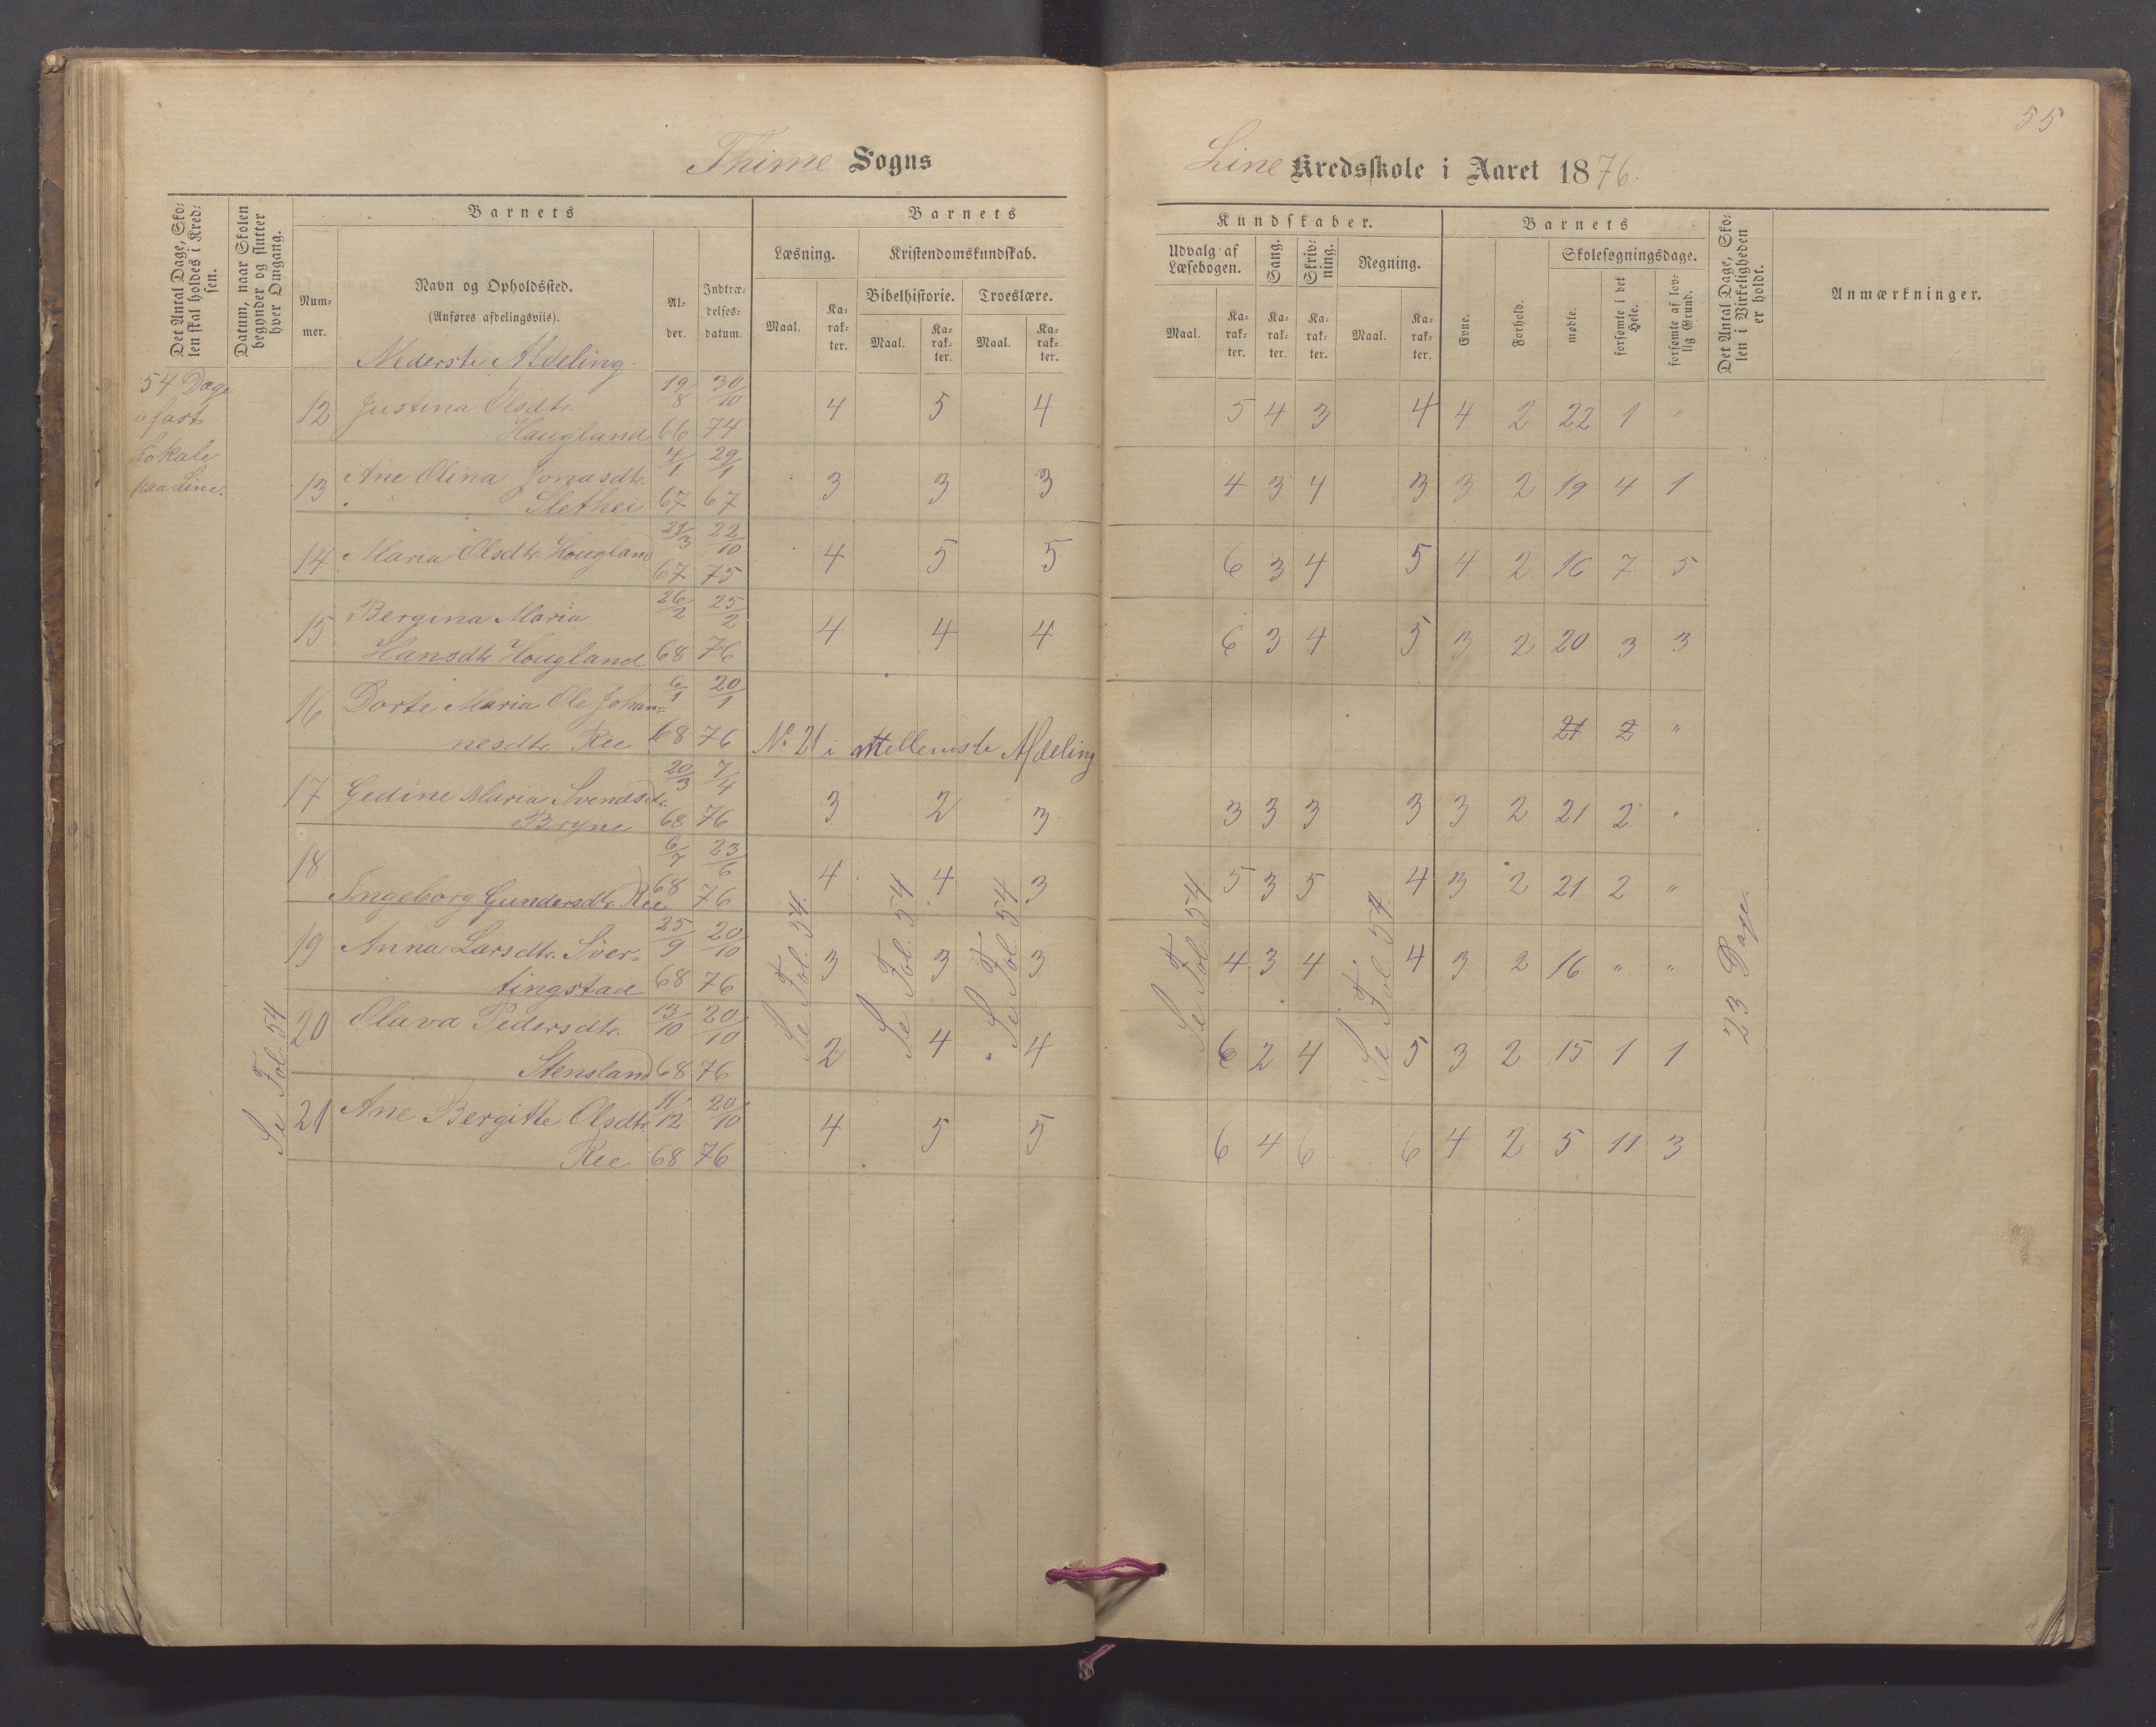 55
Thime Sogns
Line Kredsskole i Aaret 1876.
Det Antal Dage, Skolen skal holdes i Kredsen.
Datum, naar Skolen begynder og slutter hver Omgang.
Barnets
Nummer.
Navn og Opholdssted.
(Anføres afdelingsviis).
Nederste Afdeling.
Alder.
Indtrædelsesdatum.
Barnets
Læsning.
Kristendomskundskab.
Bibelhistorie.
Troeslære.
Maal.
Karakter.
Maal.
Karakter.
Maal.
Karakter.
Kundskaber.
Udvalg af Læsebogen.
Sang.
Skrivning.
Regning.
Maal.
Karakter.
Karakter.
Karakter.
Maal.
Karakter.
Barnets
Evne.
Forhold.
Skolesøgningsdage.
mødte.
forsømte i det Hele.
forsømte af lovlig Grund.
Det Antal Dage, Skolen i Virkeligheden er holdt.
Anmærkninger.
54 Dage
i fast
Lokale
paa Line.
12 Justina Olsdtr. Haugland 19/8 66 30/10 74 4 5 4 5 4 3 4 4 2 22 1 "
13 Ane Olina Jonasdtr. Slethei 4/1 67 29/1 67 3 3 3 4 3 4 3 3 2 19 4 1
14 Maria Olsdtr. Hougland 21/3 67 22/10 75 4 5 5 6 3 4 5 4 2 16 7 5
15 Bergina Maria Hansdtr Hougland 26/2 68 25/2 76 4 4 4 6 3 4 5 3 2 20 3 3
16 Dorte Maria Ole Johannesdtr. Ree 6/1 68 20/1 76 No 21 i Mellemste Afdeling 21 2 "
17 Gedine Maria Svendsdtr. Bryne 20/3 68 7/4 76 3 2 3 3 3 3 3 3 2 21 2 "
18 Ingeborg Gundersdtr. Ree 6/7 68 23/6 76 4 4 3 5 3 5 4 3 2 21 2 "
19 Anna Larsdtr. Svertingstad 25/9 68 20/10 76 3 3 3 4 3 4 4 3 2 16 " "
20 Olava Pedersdtr. Stensland 13/10 68 20/10 76 2 4 4 6 2 4 5 3 2 15 1 1
21 Ane Bergitte Olsdtr. Ree 11/12 68 20/10 76 4 5 5 6 4 6 6 4 2 5 11 3
Se Fol. 54
Se Fol. 54.
Se Fol. 54
Se Fol. 54
Se Fol. 54
Se Fol. 54.
23 Dage.